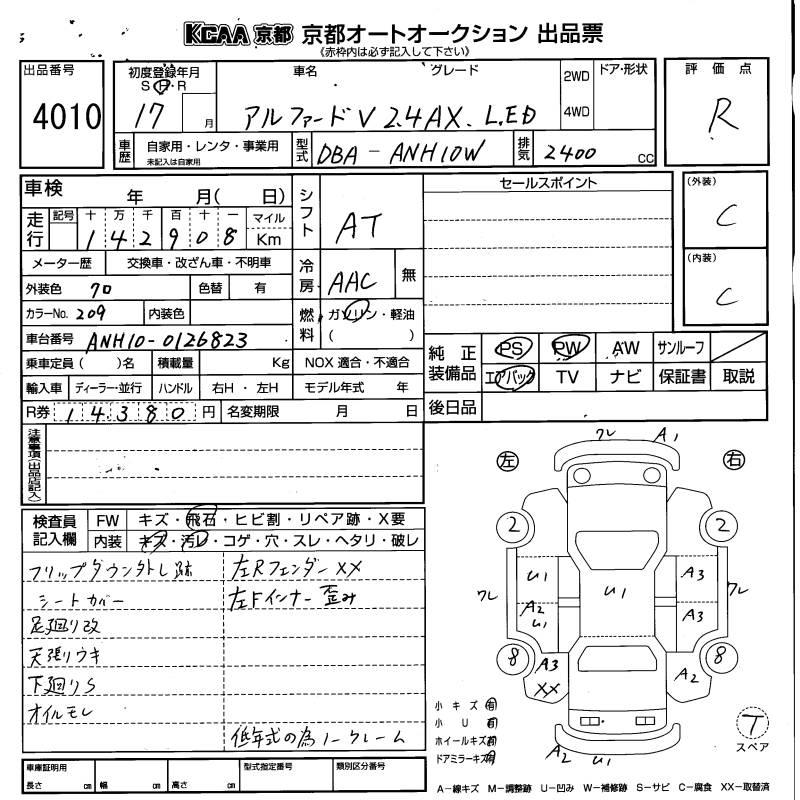 KCAA 京都 京都オートオークション 出品票
《赤枠内は必ず記入して下さい》
出品番号
4010
初度登録年月
S・H・R
17 月
車名 グレード
アルファードV 2.4AX. L.ED
2WD
4WD
ドア・形状
評価点
R
車歴
自家用・レンタ・事業用
未記入は自家用
型式
DBA-ANH10W
排気
2400 cc
車検 年 月( 日)
走行
記号 十 万 千 百 十 一
1 4 2 9 0 8
マイル
Km
メーター歴 交換車・改ざん車・不明車
外装色 クロ 色替 有
カラーNo. 209 内装色
車台番号 ANH10-0126823
乗車定員 ( )名 積載量 Kg NOX 適合・不適合
輸入車 ディーラー・並行 ハンドル 右H・左H モデル年式 年
R券 14380 円 名変期限 月 日
シフト AT
冷房 AAC 無
燃料 ガソリン・軽油
( )
セールスポイント
(外装)
C
(内装)
C
純正装備品
PS PW AW サンルーフ
エアバック TV ナビ 保証書 取説
後日品
注意事項(出品店記入)
検査員記入欄
FW キズ・飛石・ヒビ割・リペア跡・X要
内装 キズ・汚レ・コゲ・穴・スレ・ヘタリ・破レ
フリップダウン外し跡
シートカバー
足廻り改
天張りウキ
下廻りS
オイルモレ
左Rフェンダー XX
左Fインナー 歪み
低年式の為ノークレーム
左
右
ワレ A1
2 2
U1 U1 A3
ワレ ワレ
A2 U1 A3
8 8
A3 XX A2
A2 U1
小キズ 有
小U 有
ホイールキズ 有
ドアミラーキズ 有
T
スペア
車庫証明用
長さ cm 幅 cm 高さ cm
型式指定番号
類別区分番号
A-線キズ M-調整跡 U-凹み W-補修跡 S-サビ C-腐食 XX-取替済